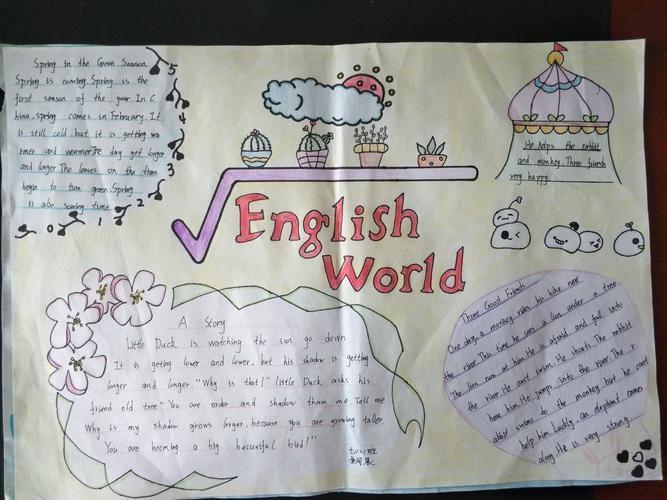 Spring in the Green Season
Spring is coming. Spring is the
first season of the year. In C
hina, spring comes in February. It
is still cold, but it is getting wa
rmer and warmer. The day get longer
and longer. The leaves on the trees
begin to turn green. Spring
is also sowing time.
5
4
3
2
1
0
English
World
He helps the rabbit
and monkey. Three friends
very happy.
A Story
Little Duck is watching the sun go down.
It is geting lower and lower, but his shadow is getting
longer and longer. "Why is that?" little Duck asks his
friend old tree." You are order and shadow tham me. Tell me
Why is my shadow grows larger, because you are growing taller.
You are becming a big beautiful bird!"
Three Good Friends
One day, a monkey rides his bike near
the river. This time he sees a lion under a tree
The lion runs at him. He is afraid and fall into
the river. He can't swim. He shouts. The rabbit
hears him. He jumps into the river. The r
abbit swims to the monkey, but he can't
help him. Luckily, an elephant comes
along. He is very strong.